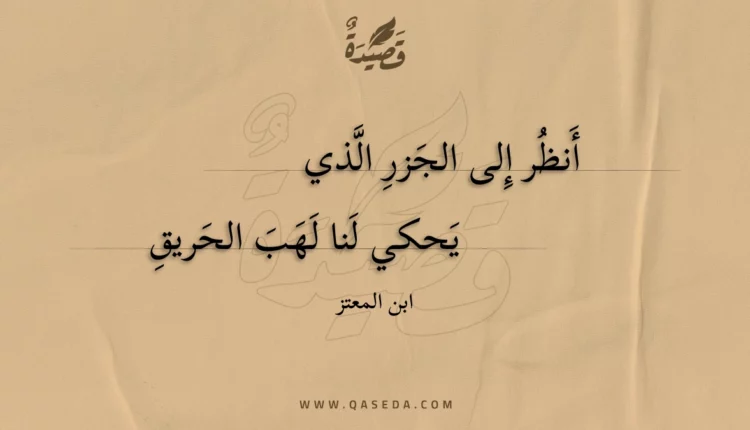 قَصِيْدَةٌ
أَنظُر إِلى الجَزرِ الَّذي
يَحكي لَنا لَهَبَ الحَريقِ
ابن المعتز
WWW.QASEDA.COM